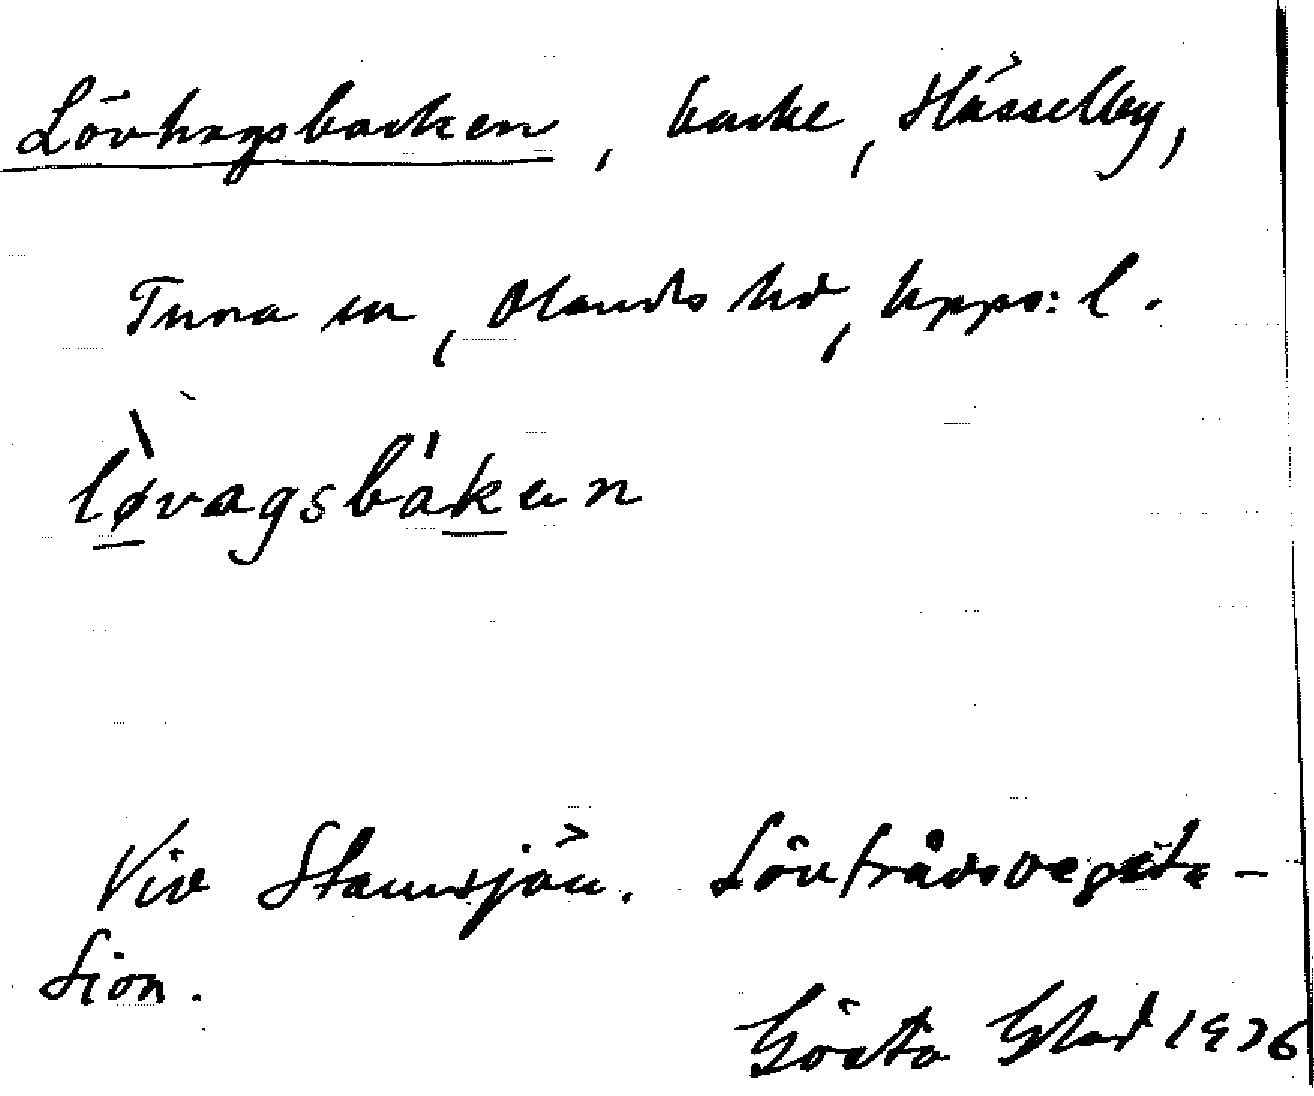 Lövhagsbacken, backe, Hässelby,
Tuna sn, Olands hd, Upps: l.
lø̀vagsbák̲en
Vid Stamsjön. Lövträdsvegeta-
tion.
Gösta Glad 1936